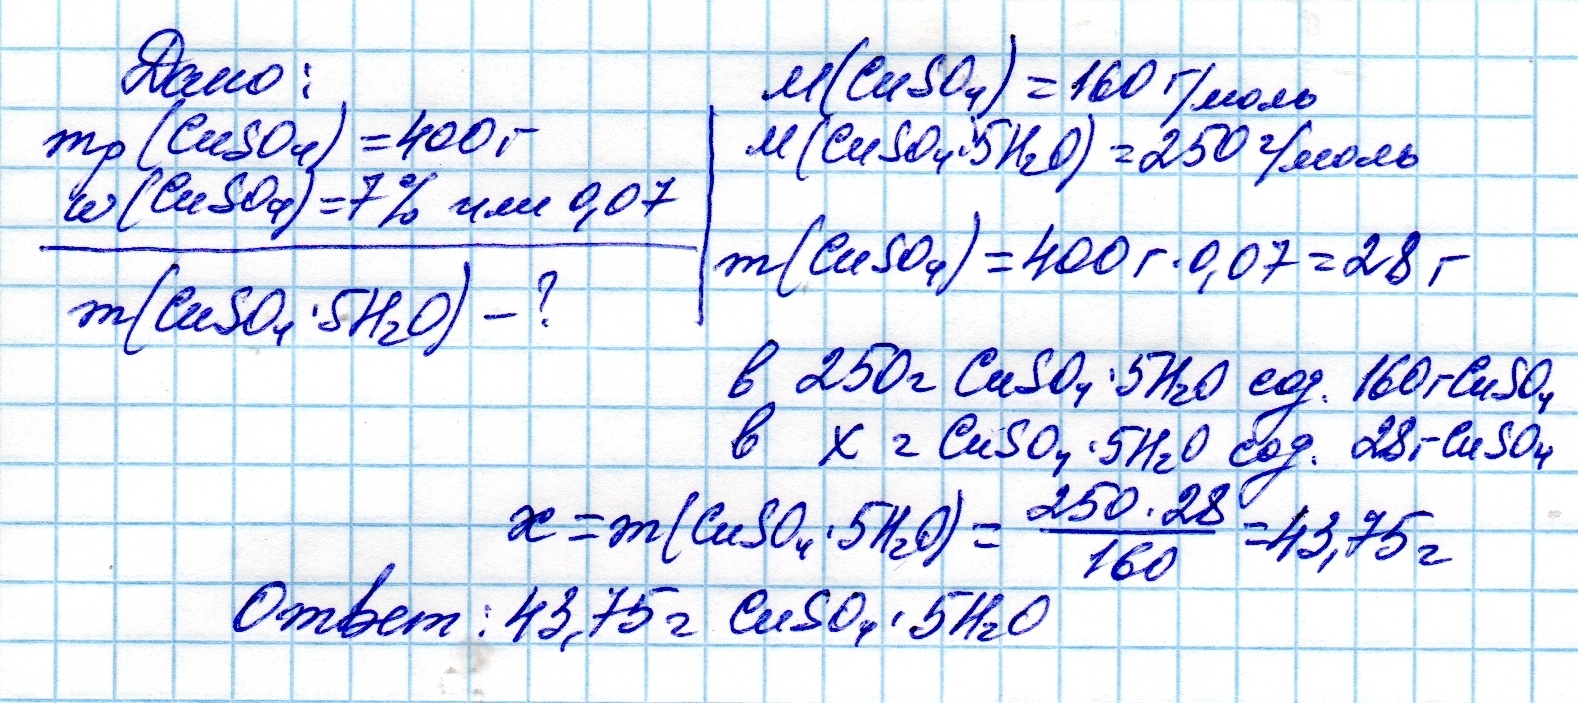 Дано:
mр(CuSO₄) = 400 г
w(CuSO₄) = 7% или 0,07
m(CuSO₄·5H₂O) - ?
M(CuSO₄) = 160 г/моль
M(CuSO₄·5H₂O) = 250 г/моль
m(CuSO₄) = 400 г · 0,07 = 28 г
в 250 г CuSO₄·5H₂O сод. 160 г CuSO₄
в x г CuSO₄·5H₂O сод. 28 г CuSO₄
x = m(CuSO₄·5H₂O) = 250·28/160 = 43,75 г
Ответ: 43,75 г CuSO₄·5H₂O